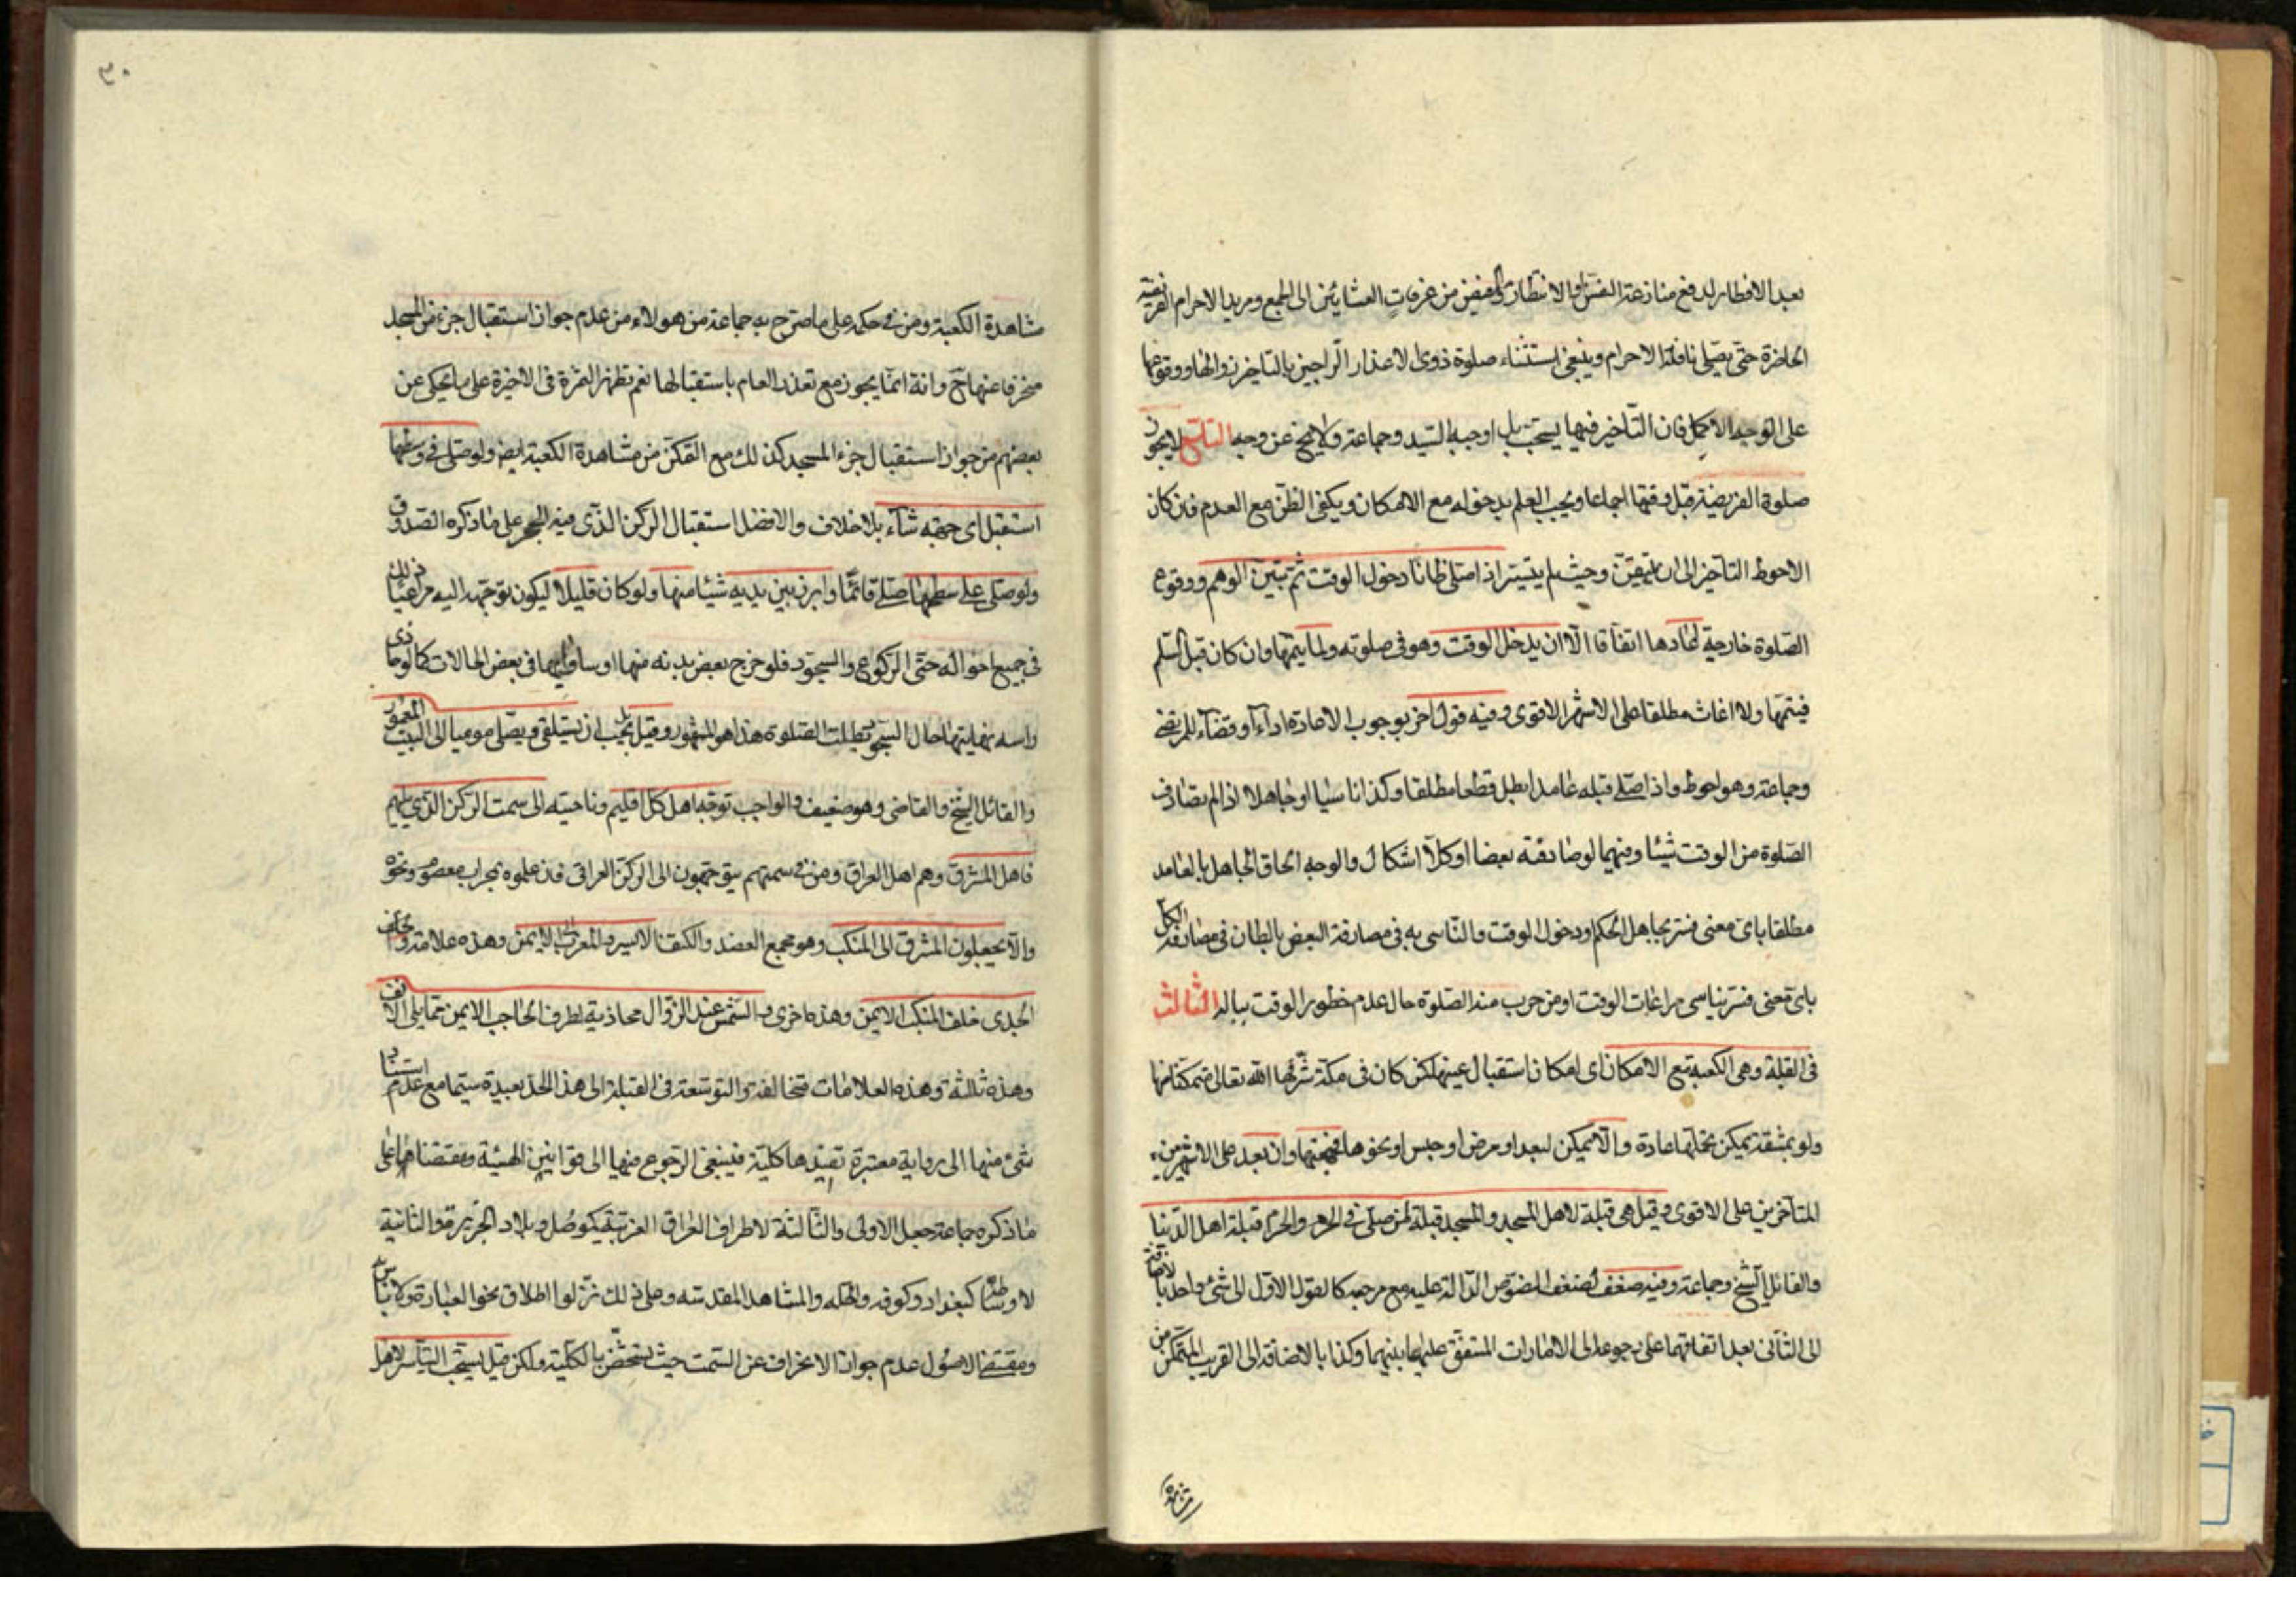 بعد الافطار لدفع منازعة النفس او الانتظار والمفيض من عرفات العشائين الى الجمع ومريد الاحرام الفريضة
الحاضرة حتى يصلى نافلة الاحرام وينبغى استثناء صلوة ذوى الاعذار الراجين بالتاخير زوالها ووقوعها
على الوجه الاكمل فان التاخير فيها يستحب بل اوجبه السيد وجماعة ولا يخ عن وجه التاسع لا يجوز
صلوة الفريضة قبل وقتها اجماعا ويجب العلم بدخوله مع الامكان ويكفى الظن مع العدم فان كان
الاحوط التاخير الى ان يتيقن وحيث لم يتيسر اذا صلى ظانا دخول الوقت ثم تبين الوهم ووقوع
الصلوة خارجة اعادها اتفاقا الا ان يدخل الوقت وهو فى صلوته ولما يتمها وان كان قبل السلم
فيتمها ولا اعادة مطلقا على الاشهر الاقوى وفيه قول اخر بوجوب الاعادة اداء او قضاء للمرتضى
وجماعة وهو احوط واذا صلى قبله عامدا بطل قطعا مطلقا وكذا ناسيا او جاهلا اذا لم تصادف
الصلوة من الوقت شيئا وفيهما لو صادفته بعضا او كلا اشكال والوجه الحاق الجاهل بالعامد
مطلقا باى معنى فسر بجاهل الحكم ودخول الوقت والناسى به فى مصادفة البعض بالبطلان فى مصادفة الكل
باى معنى فسر بناسى مراعات الوقت او من جرت منه الصلوة حال عدم خطور الوقت بباله الثالث
فى القبلة وهى الكعبة مع الامكان اى امكان استقبال عينها لمن كان فى مكة شرفها الله تعالى متمكنا منها
ولو بمشقة يمكن تحملها عادة والا يمكن لبعد او مرض او حبس او نحوها فجهتها وان بعد على الاشهر بين
المتاخرين على الاقوى وقيل هى قبلة لاهل المسجد والمسجد قبلة لمن صلى فى الحرم والحرم قبلة اهل الدنيا
والقائل الشيخ وجماعة وفيه ضعف لضعف النصوص الدالة عليه مع مرجعه كالقول الاول الى شئ واحد بالاضافة
الى الثانى بعد اتفاقهما على رجوعه الى الامارات المتفق عليها بينهما وكذا بالاضافة الى القريب المتمكن من
مشاهدة
٣٠
مشاهدة الكعبة ومن فى حكمه على ما صرح به جماعة من هولاء من عدم جواز استقبال جزء من المسجد
منحرفا عنها ح وانه انما يجوز مع تعذر العلم باستقبالها نعم تظهر الثمرة فى الاخيرة على ما يحكى عن
بعضهم من جواز استقبال جزء المسجد كذلك مع التمكن من مشاهدة الكعبة ايضا ولو صلى فى وسطها
استقبل اى جهته شاء بلا خلاف والافضل استقبال الركن الذى فيه الحجر على ما ذكره الصدوق
ولو صلى على سطحها صلى قائما وابرز بين يديه شيئا منها ولو كان قليلا ليكون توجهه اليه مراعيا ذلك
فى جميع احواله حتى الركوع والسجود فلو خرج بعض بدنه منها او ساواها فى بعض الحالات كما لو حاذى
راسه نهايتها حال السجود بطلت الصلوة هذا هو المشهور وقيل بل يجب ان يستلقى ويصلى موميا الى البيت المعمور
والقائل الشيخ والقاضى وهو ضعيف والواجب توجه اهل كل اقليم وناحيته الى سمت الركن الذى يليهم
فاهل المشرق وهم اهل العراق ومن فى سمتهم يتوجهون الى الركن العراقى فان علموه بمحراب معصوم ونحوه
والا يجعلون المشرق الى المنكب وهو مجمع العضد والكتف الايسر والمغرب الى الايمن وهذه علامة ويجعلون
الجدى خلف المنكب الايمن وهذه اخرى والشمس عند الزوال محاذية لطرف الحاجب الايمن مما يلى الانف
وهذه ثالثة وهذه العلامات متخالفة والتوسعة فى القبلة الى هذا الحد بعيدة سيما مع عدم استناد
شئ منها الى رواية معتبرة تفيدها كلية فينبغى الرجوع منها الى قوانين الهيئة ومقتضاها على
ما ذكره جماعة جعل الاولى والثالثة لاطراف العراق الغربية كموصل وبلاد الجزيرة والثانية
لاوساطها كبغداد وكوفه والحله والمشاهد المقدسه وعلى ذلك نزلوا اطلاق نحو العبارة ولا باس به
ومقتضى الاصول عدم جواز الانحراف عن السمت حيث يتحض بالكلية ولكن قيل يستحب التياسر لاهل